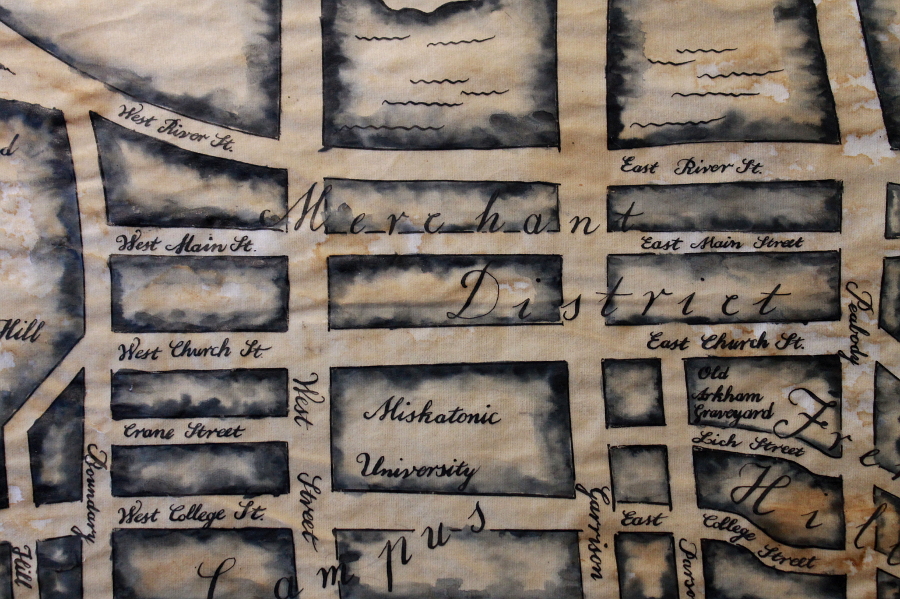 West River St.
East River St.
Merchant
West Main St.
East Main Street
District
Hill
Peabody
West Church St.
East Church St.
Old
Arkham
Graveyard
West Street
Miskatonic
University
Crane Street
Lich Street
Boundary
Garrison
West College St.
East College Street
Campus
Hill